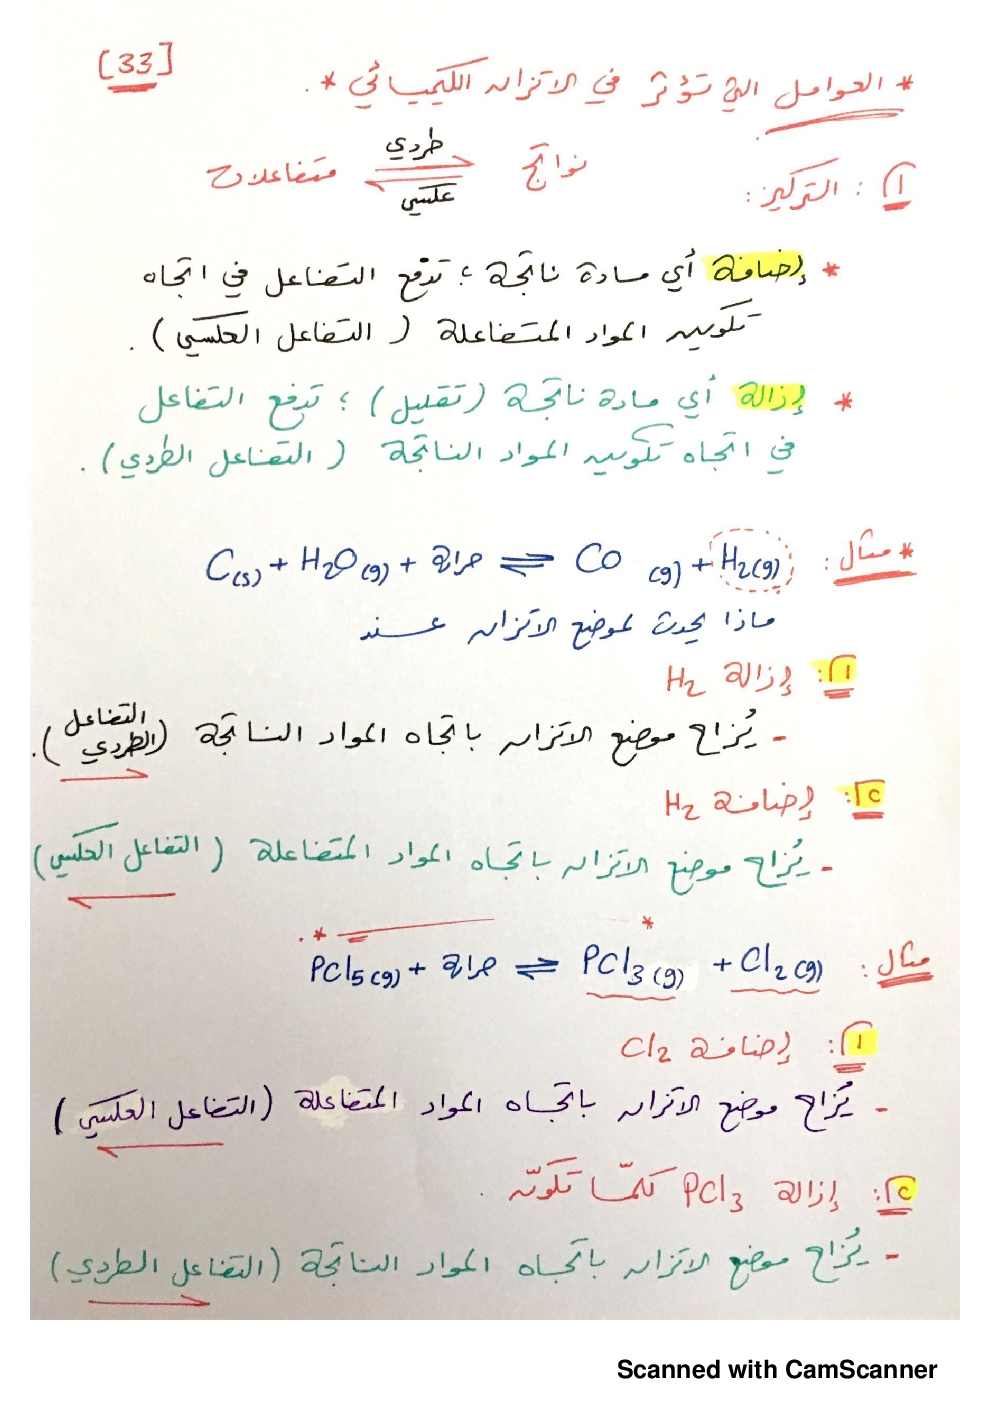 [33]
* العوامل التي تؤثر في الاتزان الكيميائي *.
1: التركيز:
متفاعلات ⇌ نواتج
طردي
عكسي
* إضافة أي مادة ناتجة ؛ تدفع التفاعل في اتجاه
تكوين المواد المتفاعلة (التفاعل العكسي).
* إزالة أي مادة ناتجة (تقليل) ؛ تدفع التفاعل
في اتجاه تكوين المواد الناتجة (التفاعل الطردي).
* مثال:
C(s) + H2O(g) + حرارة ⇌ CO (g) + H2(g)
ماذا يحدث لموضع الاتزان عند
1: إزالة H2
- يُزاح موضع الاتزان باتجاه المواد الناتجة (التفاعل الطردي).
2: إضافة H2
- يُزاح موضع الاتزان باتجاه المواد المتفاعلة (التفاعل العكسي)
مثال:
PCl5(g) + حرارة ⇌ PCl3(g) + Cl2(g)
1: إضافة Cl2
- يُزاح موضع الاتزان باتجاه المواد المتفاعلة (التفاعل العكسي)
2: إزالة PCl3 كلمّا تكوّن.
- يُزاح موضع الاتزان باتجاه المواد الناتجة (التفاعل الطردي)
Scanned with CamScanner